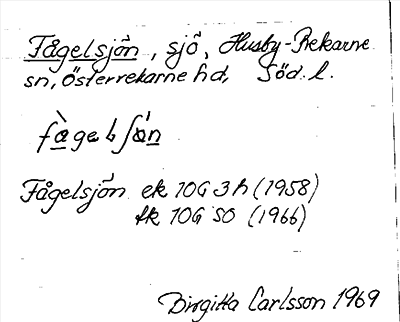 Fågelsjön, sjö, Husby-Rekarne
sn, Österrekarne hd, Söd. l.
Fågelsjön ek 10G 3h (1958)
tk 10G SO (1966)
Birgitta Carlsson 1969